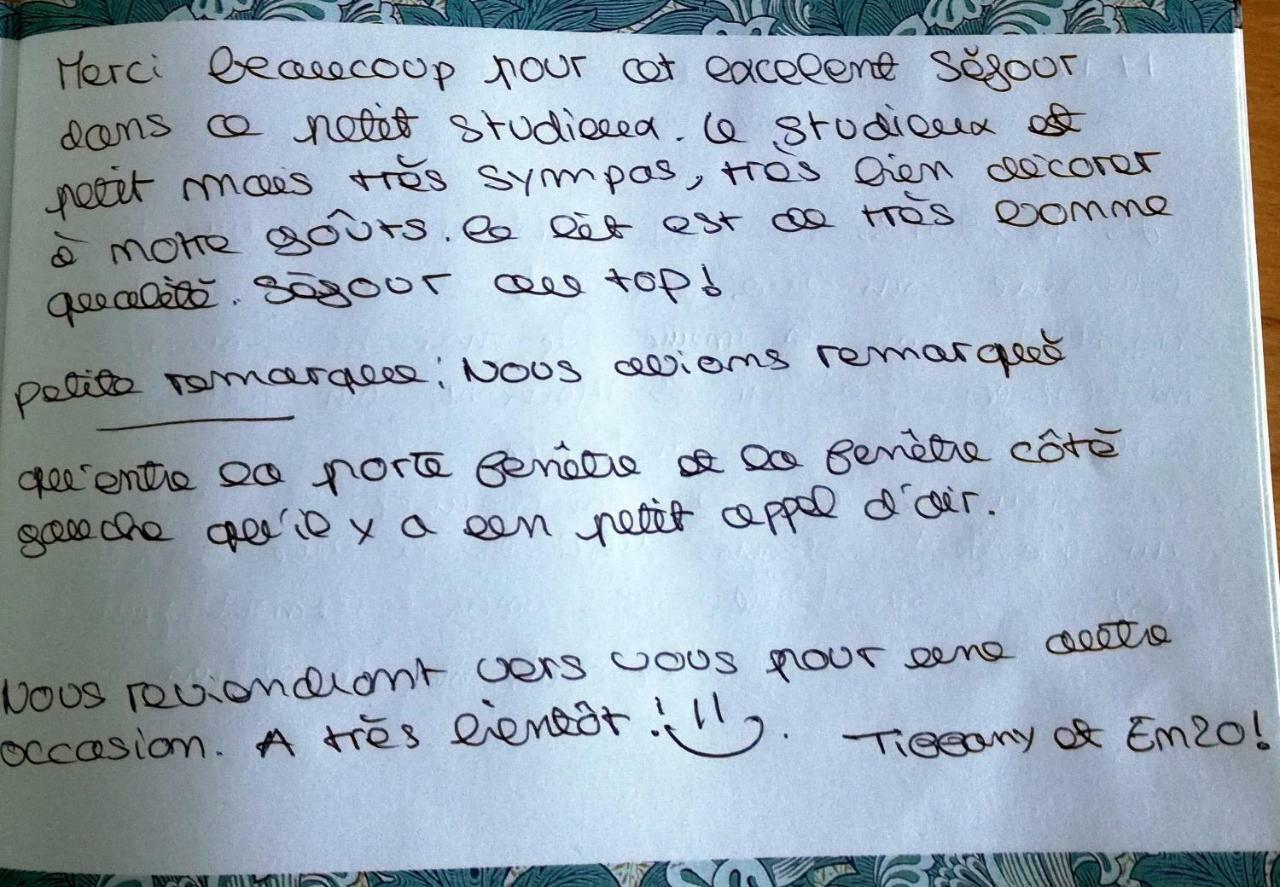 Merci beaucoup pour cet excelent séjour
dans ce petit studieux. Le studieux est
petit mais très sympas, très bien décorer
à notre goûts. Le lit est de très bonne
qualité. Séjour au top!
Petite remarque : Nous avions remarqué
qu'entre la porte fenêtre et la fenêtre côté
gauche qu'il y a un petit appel d'air.
Nous reviendront vers vous pour une autre
occasion. A très bientôt ! Tiffany et Enzo!